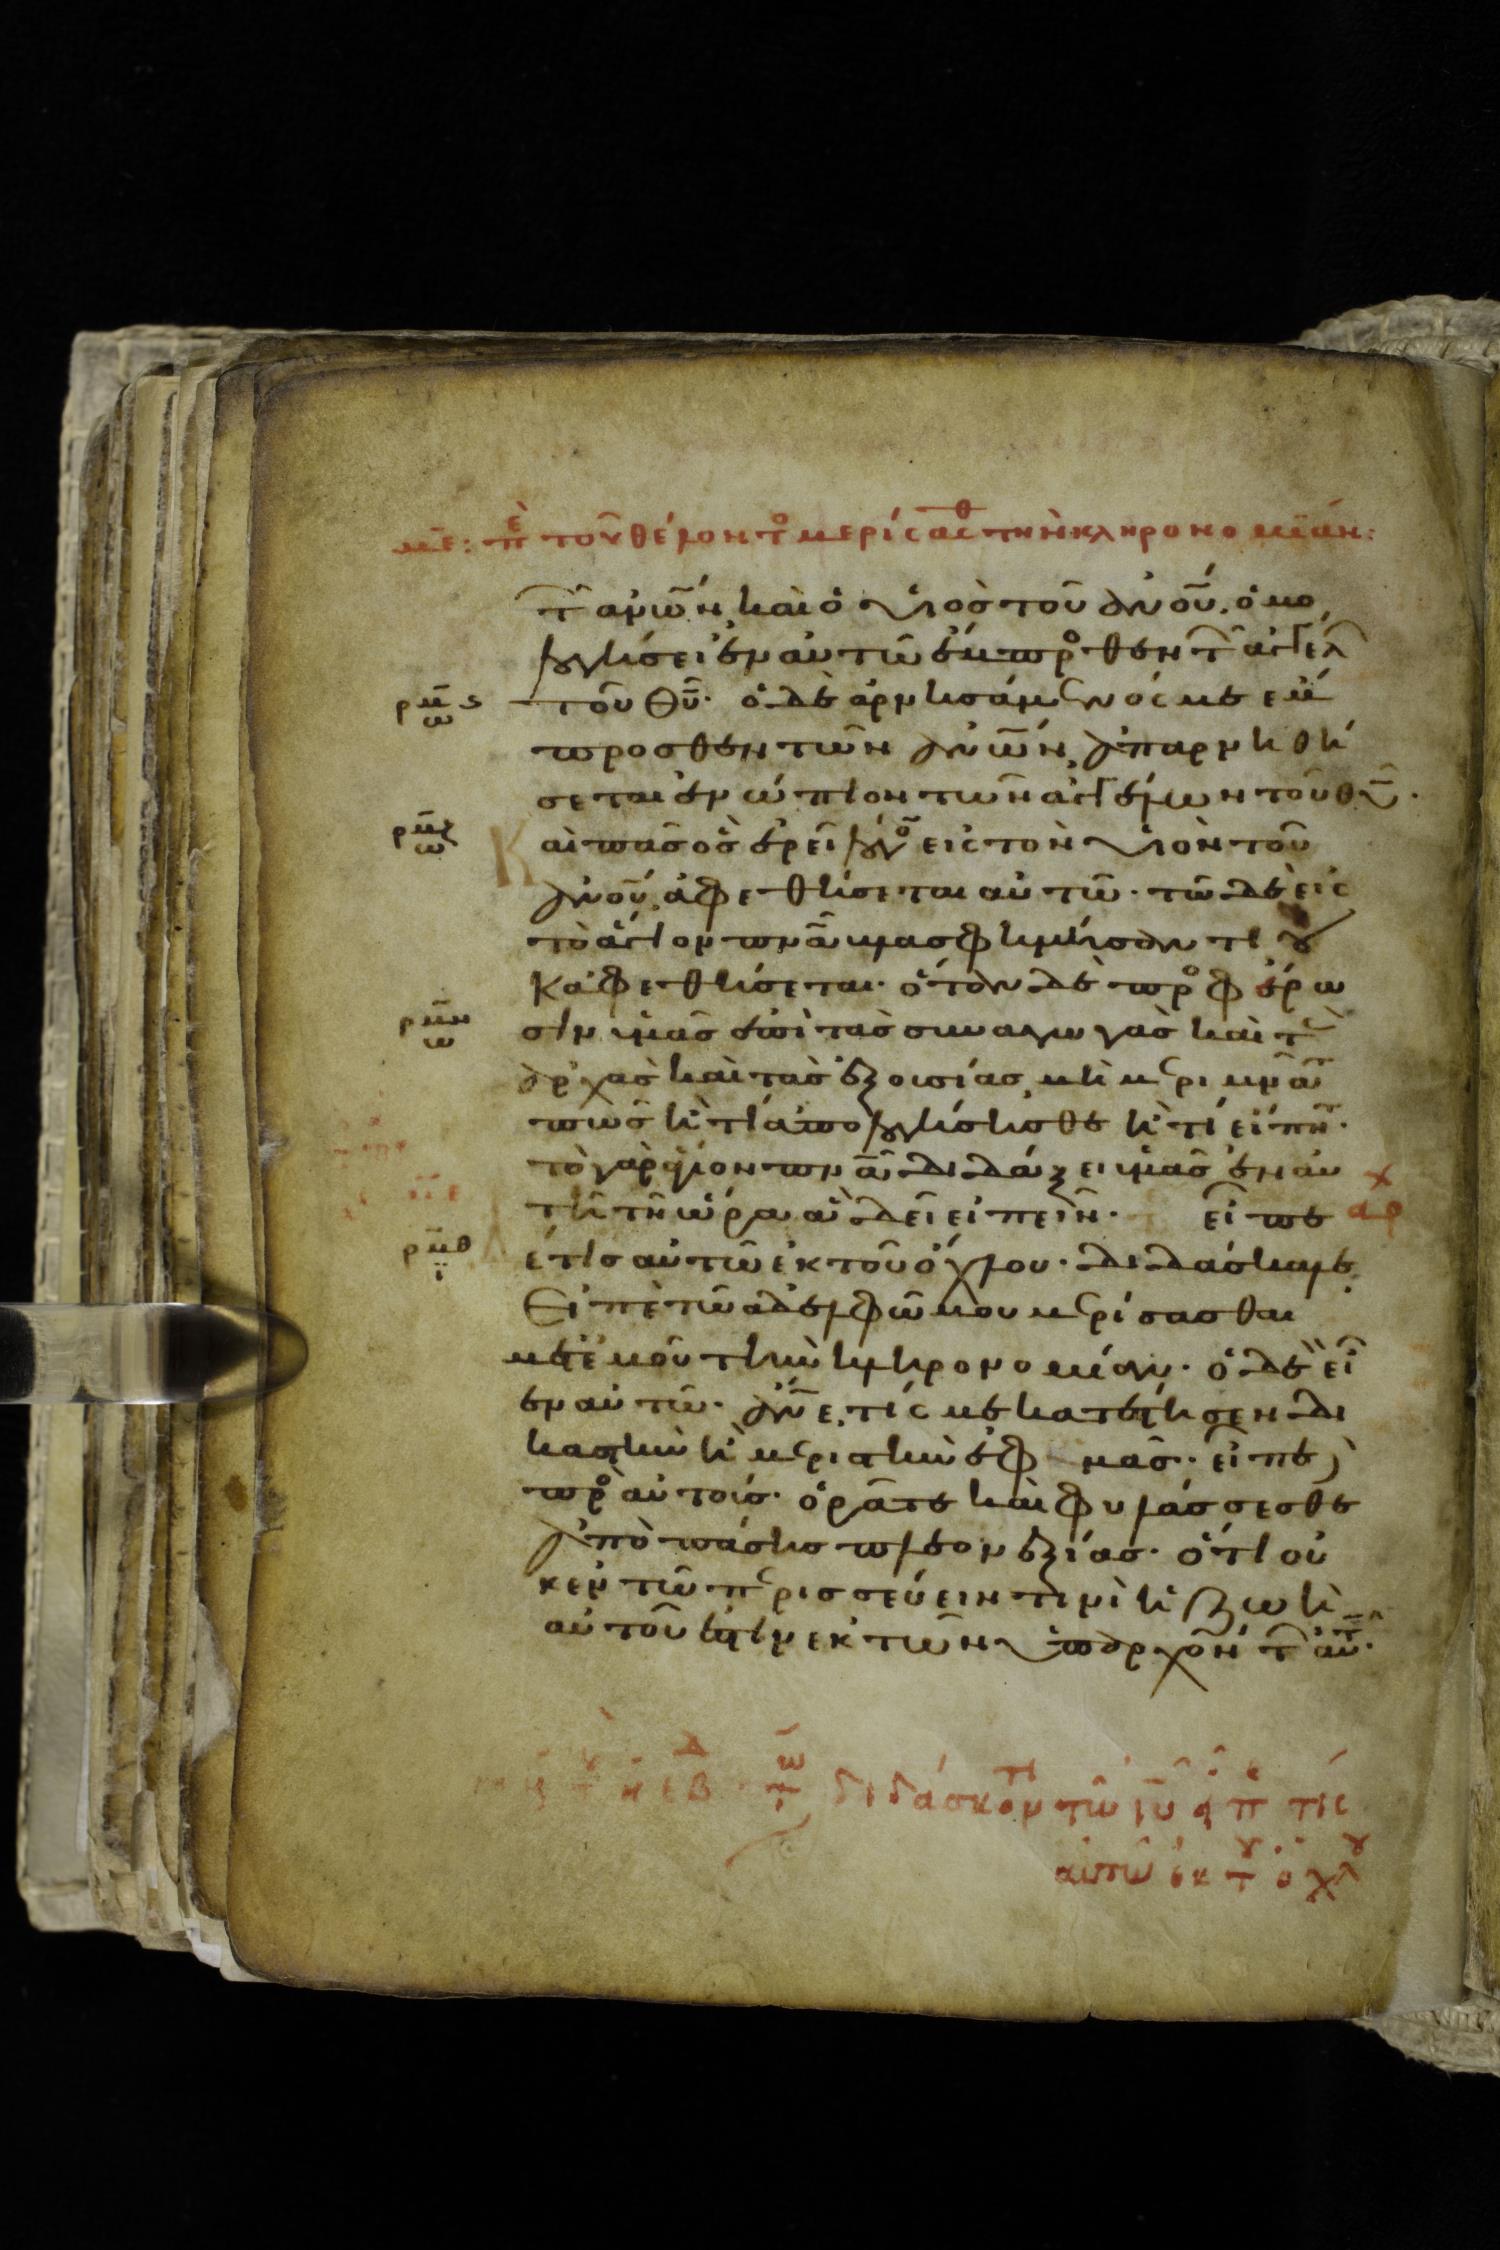 με: πε τοῦ θέλοντο μερίσασθ τὴν κληρονομίαν:
τ ἀνῶν, καὶ ὁ υἱὸς τοῦ ἀνου, ὁμο
λογήσει ἐν αὐτῶ ἔμπροσθεν τ ἀγγέλ
ρμϛ τοῦ θυ. ὁ δὲ ἀρνησάμενός με ἐμ
προσθεν τῶν ἀνων, ἀπαρνηθή
σεται ἐνώπιον τῶν ἀγγέλων τοῦ θυ.
ρμζ Καὶ πᾶς ὃς ἐρεῖ λόγο εἰς τὸν υἱὸν τοῦ
ἀνου, ἀφεθήσεται αὐτῶ. τῶ δὲ εἰς
τὸ ἅγιον πνα βλασφημήσαντι οὐ
κ ἀφεθήσεται. ὅταν δὲ προσφέρω
ρμη σιν ὑμᾶς ἐπὶ τὰς συναγωγὰς καὶ τ
ἀρχὰς καὶ τὰς ἐξουσίας, μὴ μεριμνᾶτ
πῶς ἢ τί ἀπολογήσησθε ἢ τί εἴπητ.
τὸ γὰρ ἅγιον πνα διδάξει ὑμᾶς ἐν αὐ
τῆ τῆ ὥρα ἃ δεῖ εἰπεῖν. εἶπε αρχ
ρμθ ι δέ τις αὐτῶ ἐκ τοῦ ὄχλου. διδάσκαλε,
εἰπὲ τῶ ἀδελφῶ μου μερίσασθαι
μετ ἐμοῦ τὴν κληρονομίαν. ὁ δὲ εἶ
εν αὐτῶ. ἀνε, τίς με κατέστησεν δι
καστὴν ἢ μεριστὴν ἐφ μᾶς. εἶπε
πρὸς αὐτοίς. ὁρᾶτε καὶ φυλάσσεσθε
ἀπὸ πάσης πλεονεξίας. ὅτι οὐ
κ ἐν τῶ περισσεύειν τινὶ ἡ ζωὴ
αὐτοῦ ἐστὶν ἐκ τῶν ὑπαρχόν τ αὐτ.
διδάσκοντι τῶ ιυ π τίς
αὐτῶ ἐκ τ ὄχλ